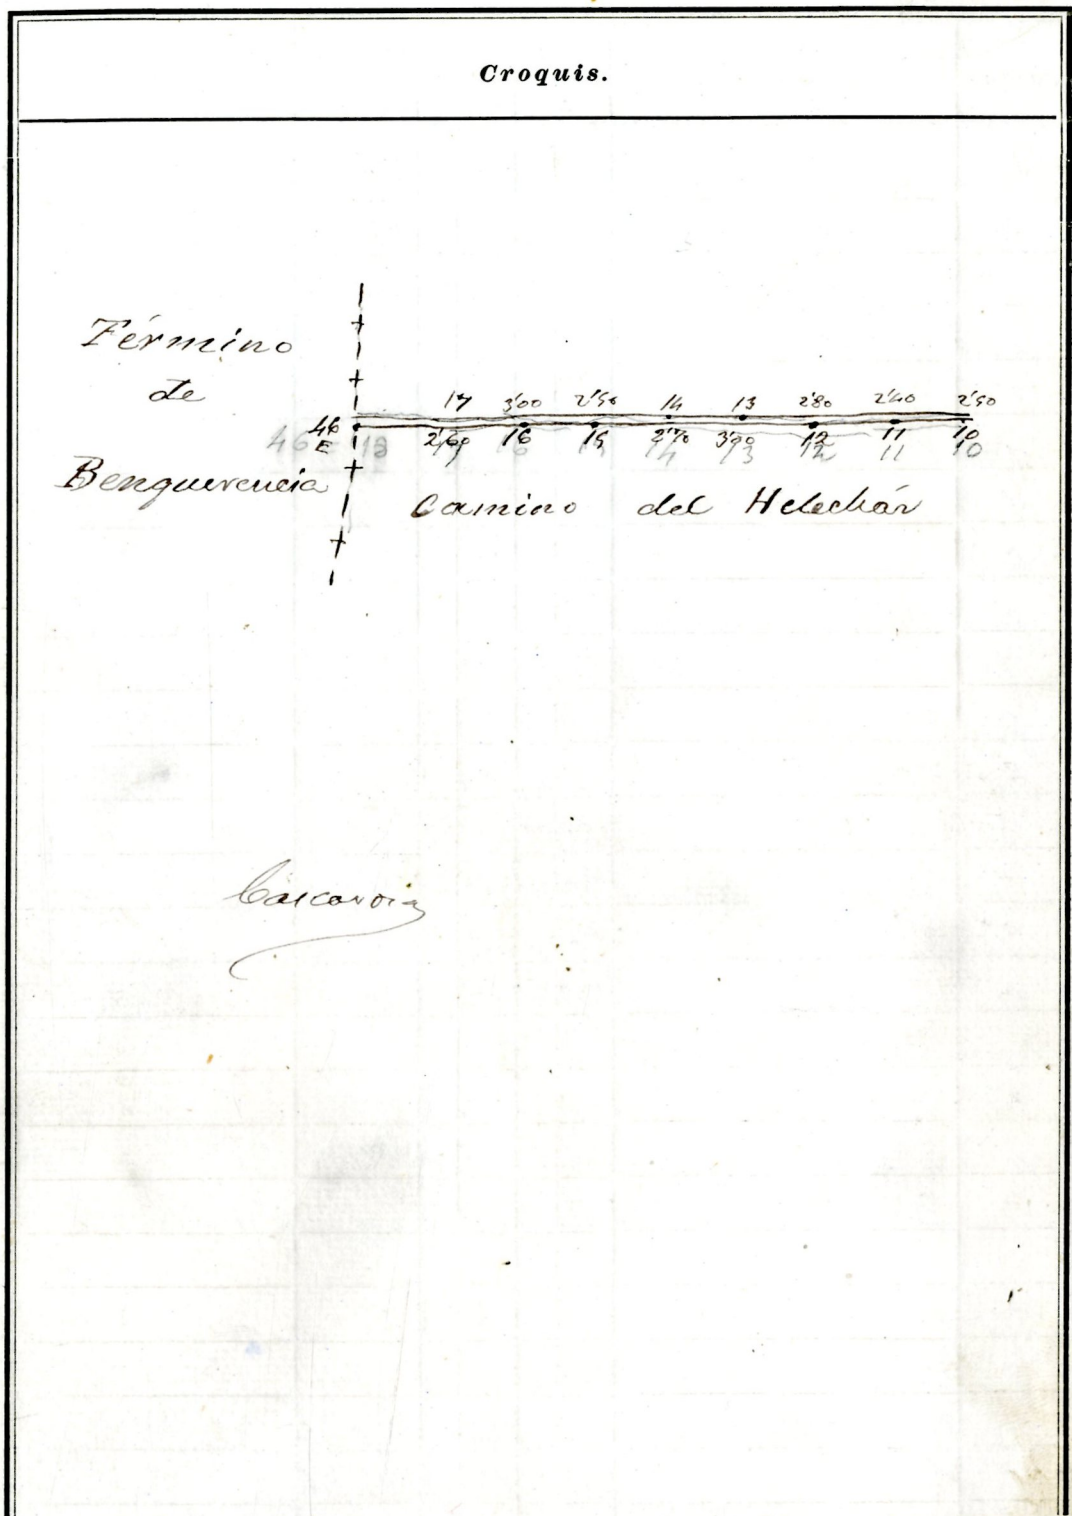 Croquis.
Término
de
Benquerencia
17 3'00 2'50 14 13 2'80 2'40 2'50
46 2'60 16 15 2'70 3'00 12 11 10
E
46 18 17 16 15 14 13 12 11 10
Camino del Helechár